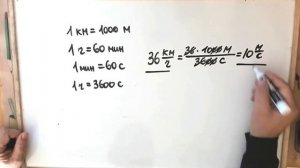 1 км = 1000 м
1 ч = 60 мин
1 мин = 60 с
1 ч = 3600 с
36 км/ч = 36 · 1000 м / 3600 с = 10 м/с